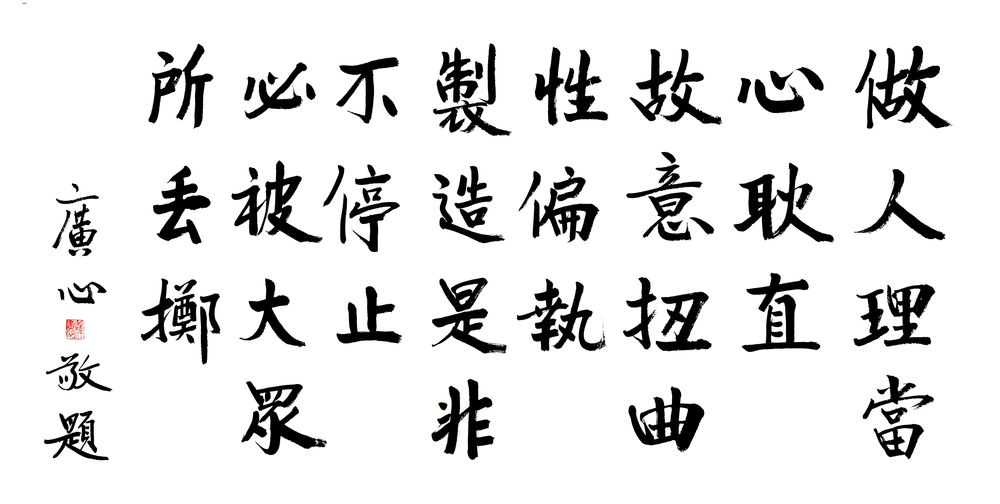 做人理當
心耿直
故意扭曲
性偏執
製造是非
不停止
必被大眾
所丟擲
廣心敬題